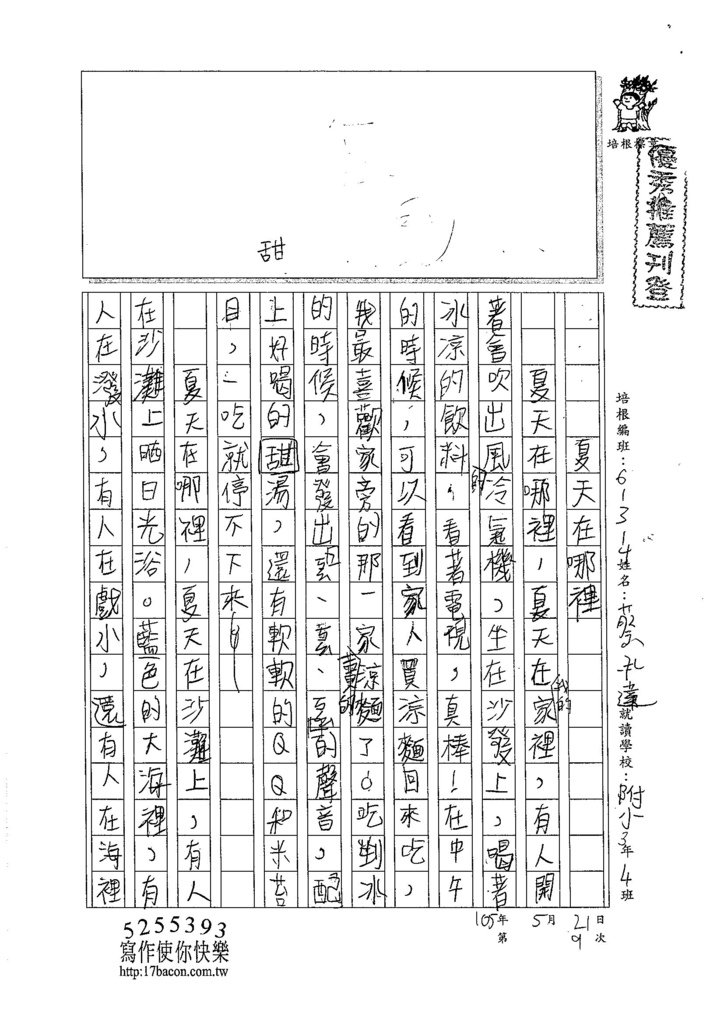 培根學堂
優秀推薦刊登
甜
培根編班：61314 姓名： 就讀學校：附小 3年 4班
夏天在哪裡
夏天在哪裡，夏天在我的家裡，有人開
著會吹出風的冷氣機，坐在沙發上，喝著
冰涼的飲料，看著電視，真棒！在中午
的時候，可以看到家人買涼麵回來吃，
我最喜歡家旁的那一家賣的涼麵了。吃剉冰
的時候，會發出、、的聲音，配
上好喝的甜湯，還有軟軟的QQ和米苔
目，一吃就停不下來！
夏天在哪裡，夏天在沙灘上，有人
在沙灘上晒日光浴。藍色的大海裡，有
人在潑水，有人在戲水，還有人在海裡
105年 5月 21日
第 9次
5255393
寫作使你快樂
http:17bacon.com.tw